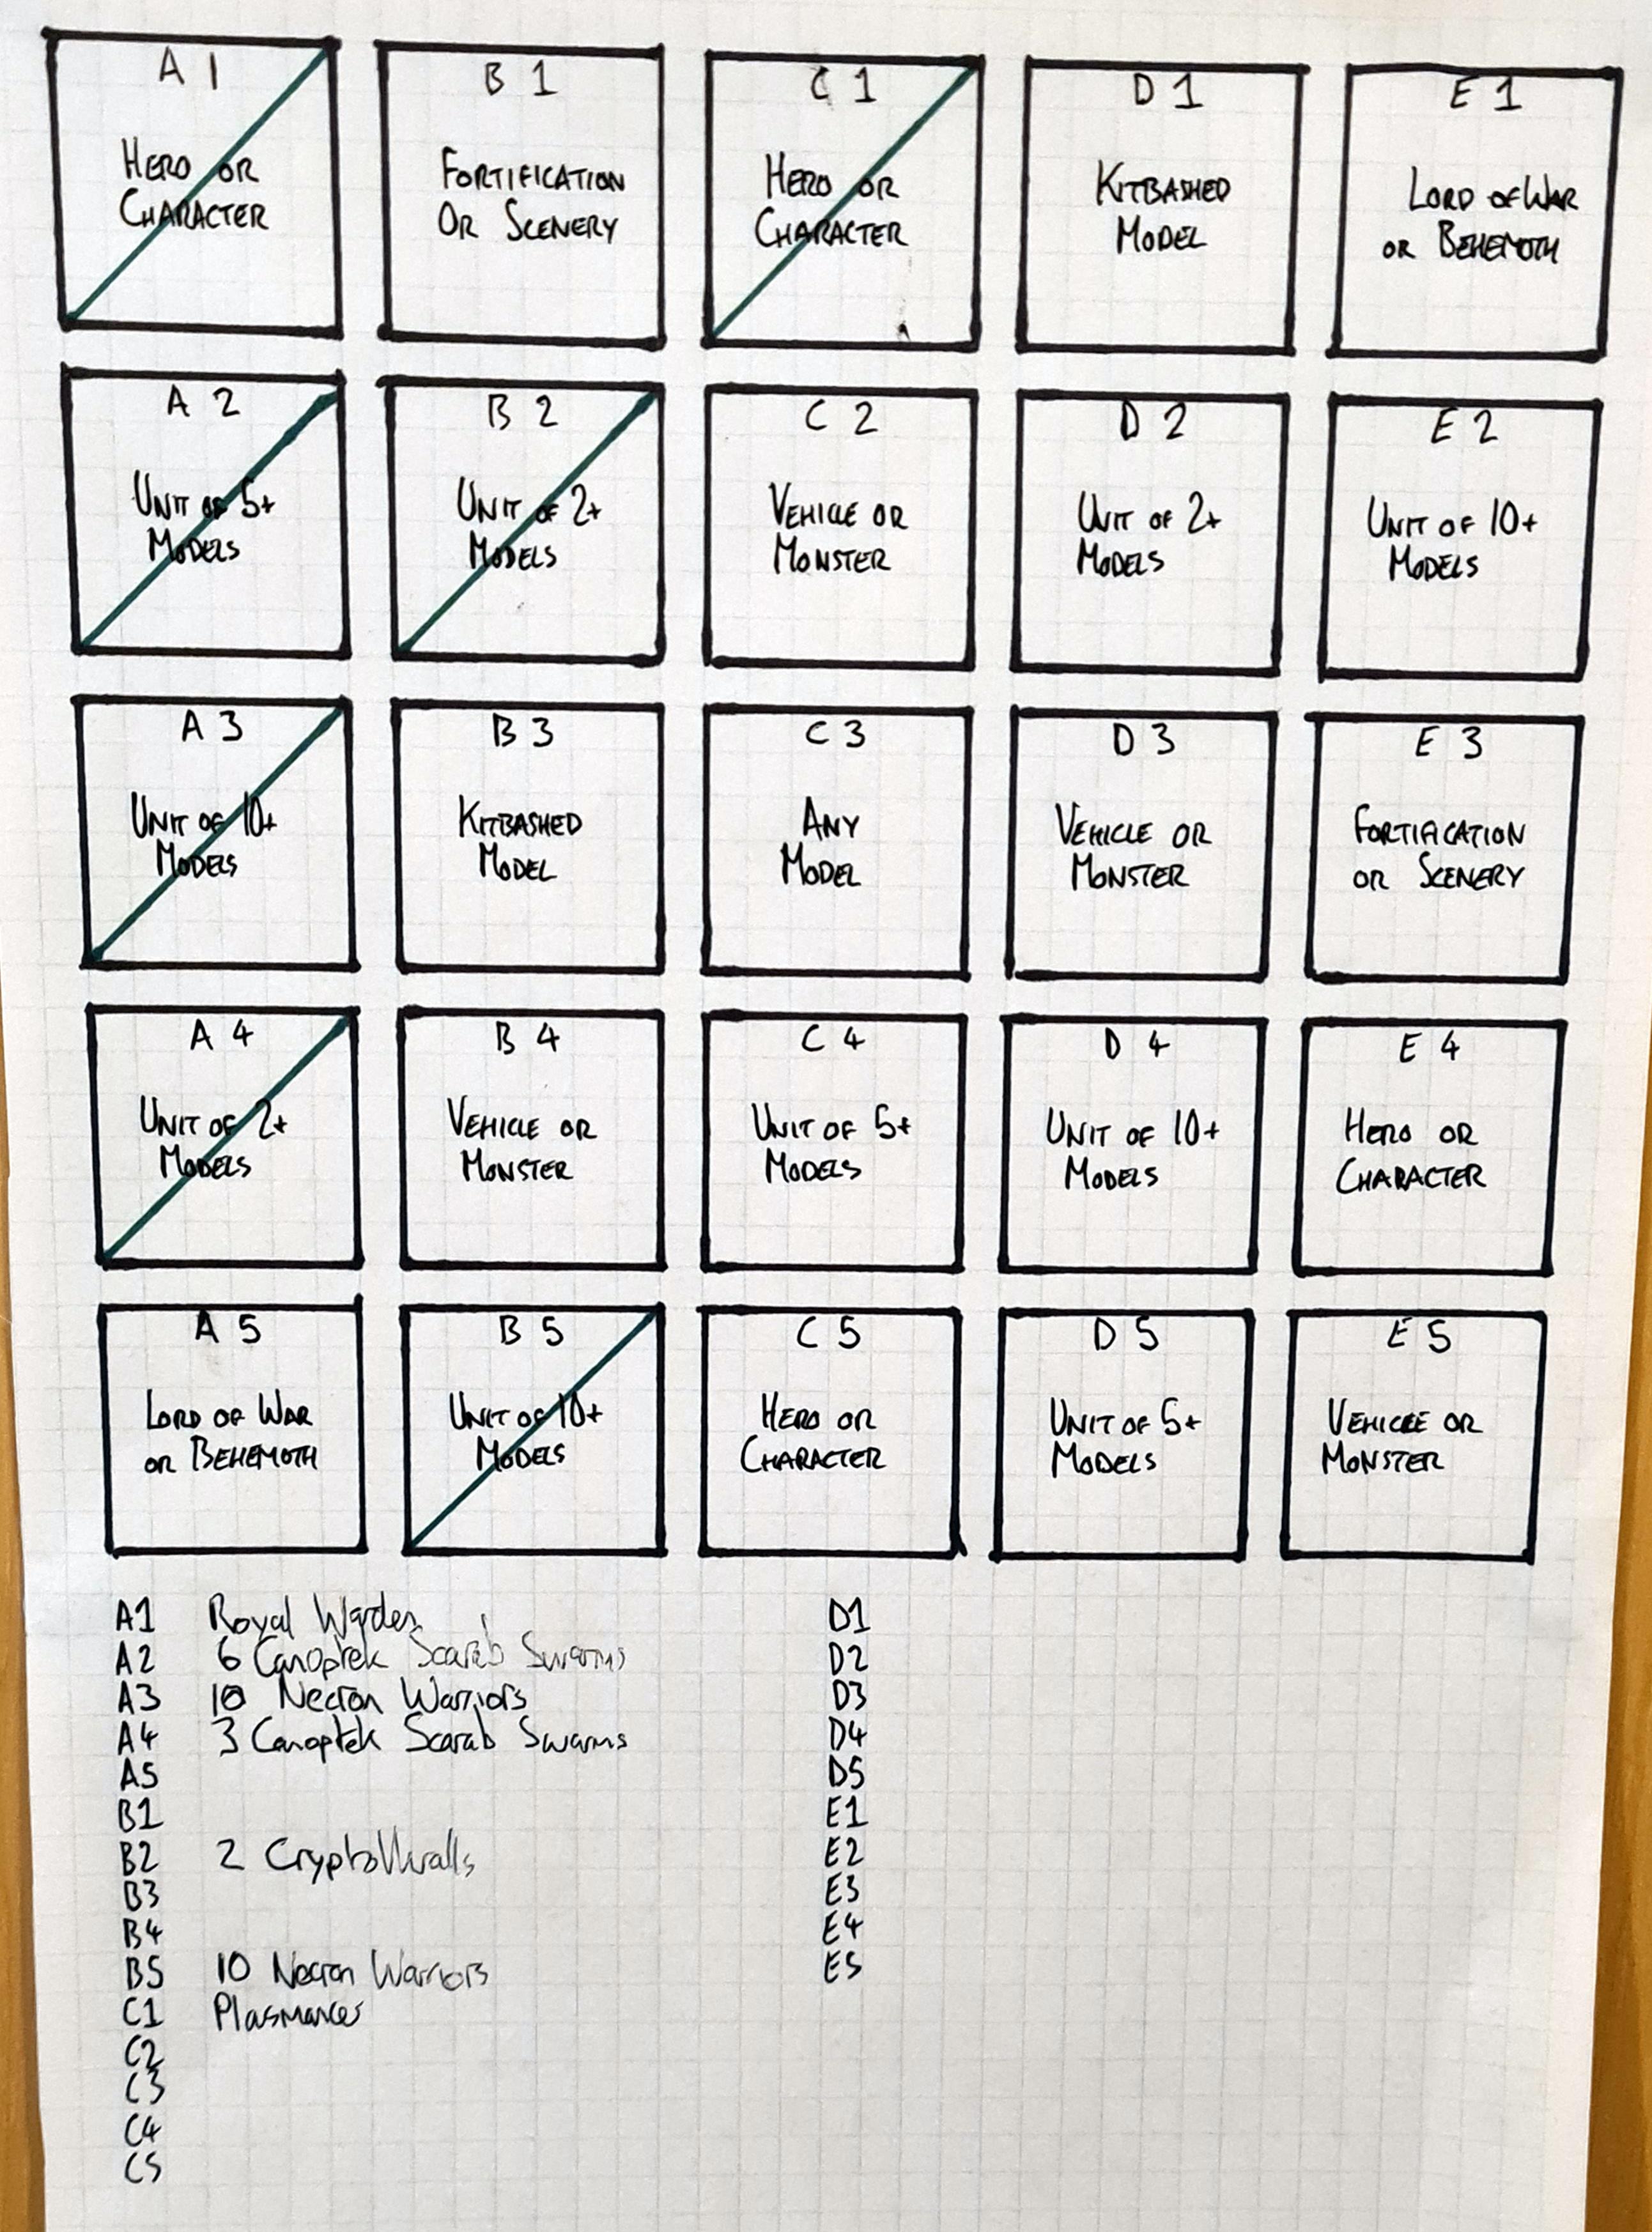 A 1
HERO OR
CHARACTER
B 1
FORTIFICATION
OR SCENERY
C 1
HERO OR
CHARACTER
D 1
KITBASHED
MODEL
E 1
LORD OF WAR
OR BEHEMOTH
A 2
UNIT OF 5+
MODELS
B 2
UNIT OF 2+
MODELS
C 2
VEHICLE OR
MONSTER
D 2
UNIT OF 2+
MODELS
E 2
UNIT OF 10+
MODELS
A 3
UNIT OF 10+
MODELS
B 3
KITBASHED
MODEL
C 3
ANY
MODEL
D 3
VEHICLE OR
MONSTER
E 3
FORTIFICATION
OR SCENERY
A 4
UNIT OF 2+
MODELS
B 4
VEHICLE OR
MONSTER
C 4
UNIT OF 5+
MODELS
D 4
UNIT OF 10+
MODELS
E 4
HERO OR
CHARACTER
A 5
LORD OF WAR
OR BEHEMOTH
B 5
UNIT OF 10+
MODELS
C 5
HERO OR
CHARACTER
D 5
UNIT OF 5+
MODELS
E 5
VEHICLE OR
MONSTER
A1 Royal Warden
A2 6 Canoptek Scarab Swarms
A3 10 Necron Warriors
A4 3 Canoptek Scarab Swarms
A5
B1
B2 2 Cryptothralls
B3
B4
B5 10 Necron Warriors
C1 Plasmancer
C2
C3
C4
C5
D1
D2
D3
D4
D5
E1
E2
E3
E4
E5